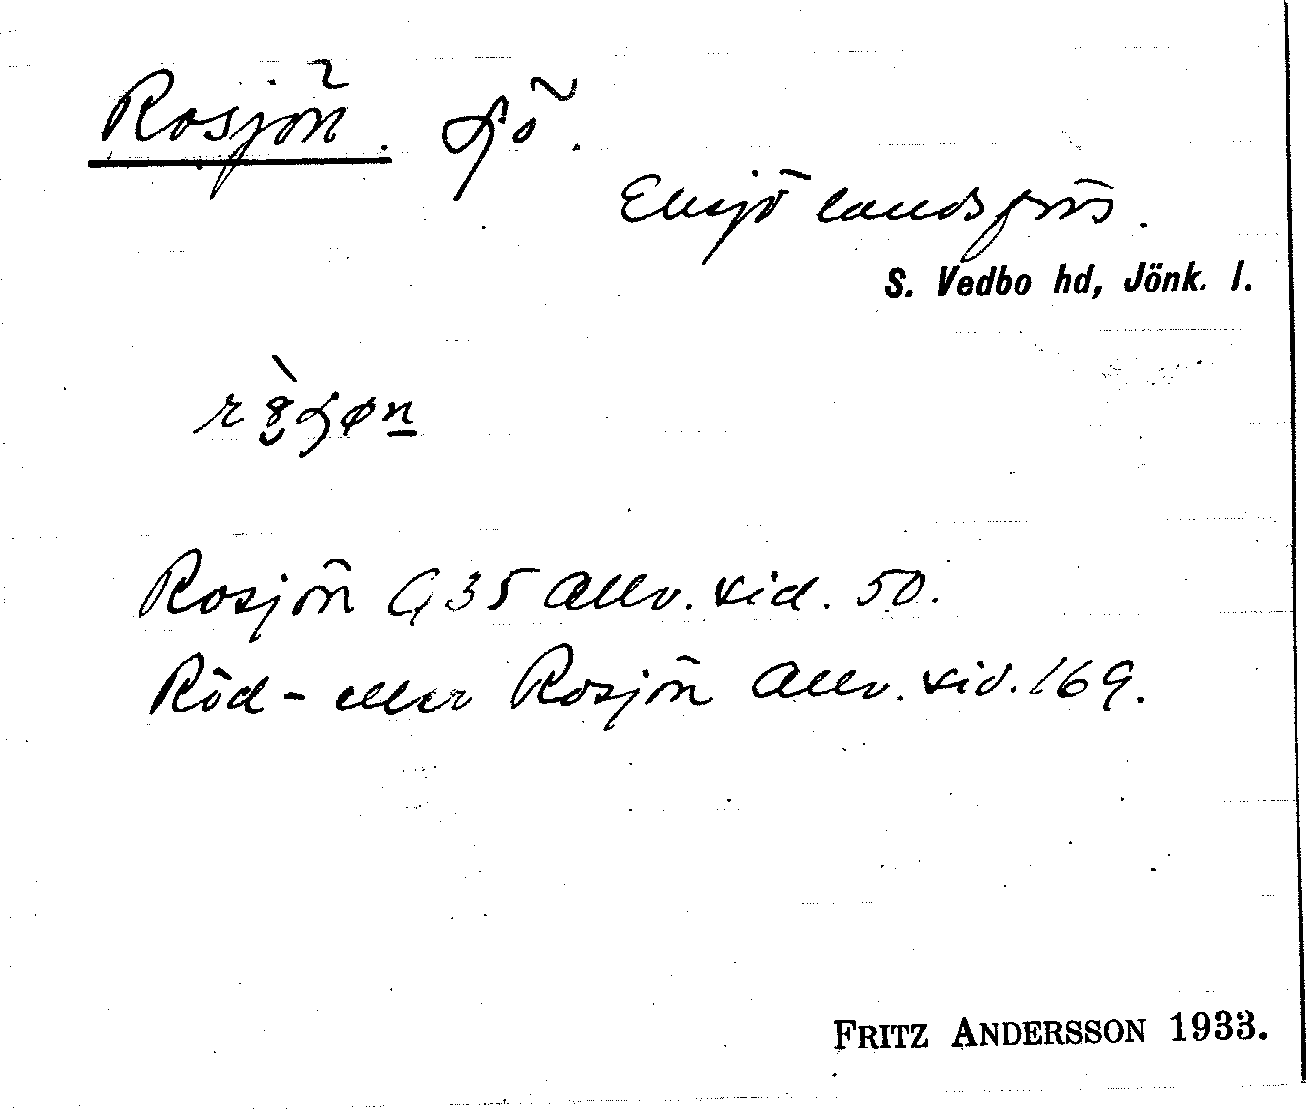 Rosjön. sjö.
Eksjö landsförs.
S. Vedbo hd, Jönk. l.
Rosjön G 35 Allv. vid. 50.
Röd- eller Rosjön Allv. vid. 169.
FRITZ ANDERSSON 1933.